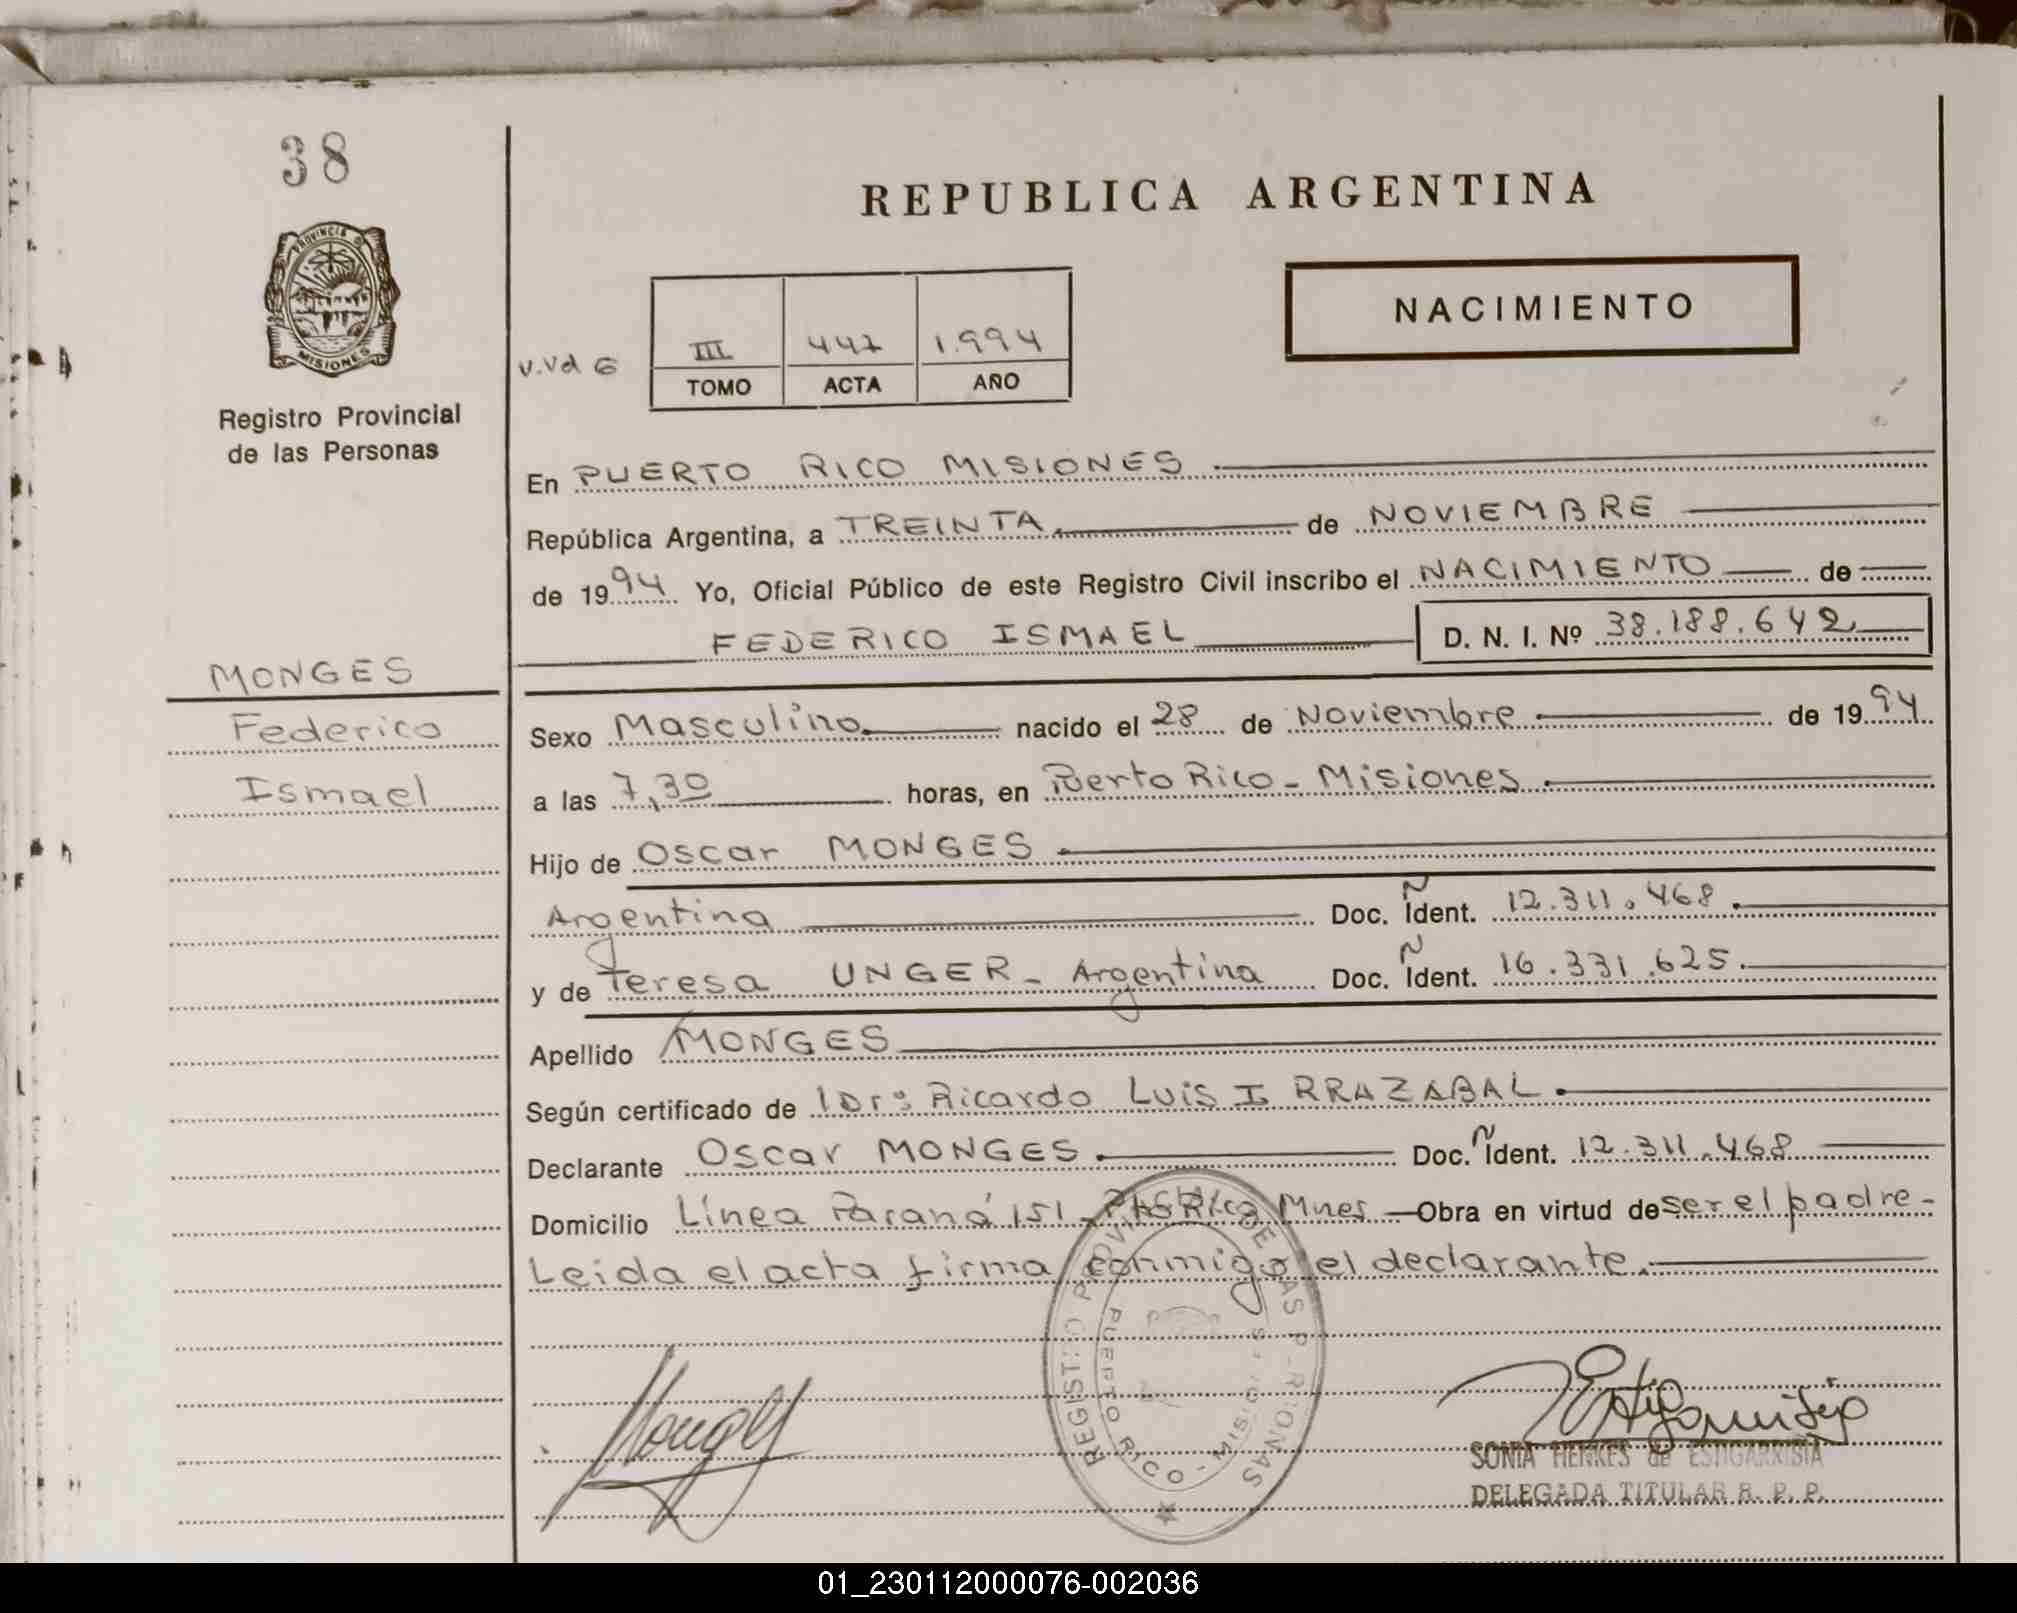 38
REPUBLICA ARGENTINA
PROVINCIA D
MISIONES
NACIMIENTO
V.Vd G
III 447 1.994
TOMO ACTA AÑO
Registro Provincial
de las Personas
En PUERTO RICO MISIONES
República Argentina, a TREINTA de NOVIEMBRE
de 1994 Yo, Oficial Público de este Registro Civil inscribo el NACIMIENTO de
FEDERICO ISMAEL D. N. I. Nº 38.188.642
MONGES
Federico
Ismael
Sexo Masculino nacido el 28 de Noviembre de 1994
a las 7,30 horas, en Puerto Rico - Misiones
Hijo de Oscar MONGES
Argentina Doc. Ident. 12.311.468
y de Teresa UNGER - Argentina Doc. Ident. 16.331.625
Apellido MONGES
Según certificado de Dr: Ricardo Luis IRRAZABAL
Declarante Oscar MONGES Doc. Ident. 12.311.468
Domicilio Línea Paraná 151 - Rico Mnes Obra en virtud de ser el padre -
Leida el acta firma conmigo el declarante.
REGISTRO PROVINCIAL DE LAS PERSONAS
PUERTO RICO - MISIONES
Monges
SONIA HENKES de ESTIGARRIBIA
DELEGADA TITULAR R. P. P.
01_230112000076-002036